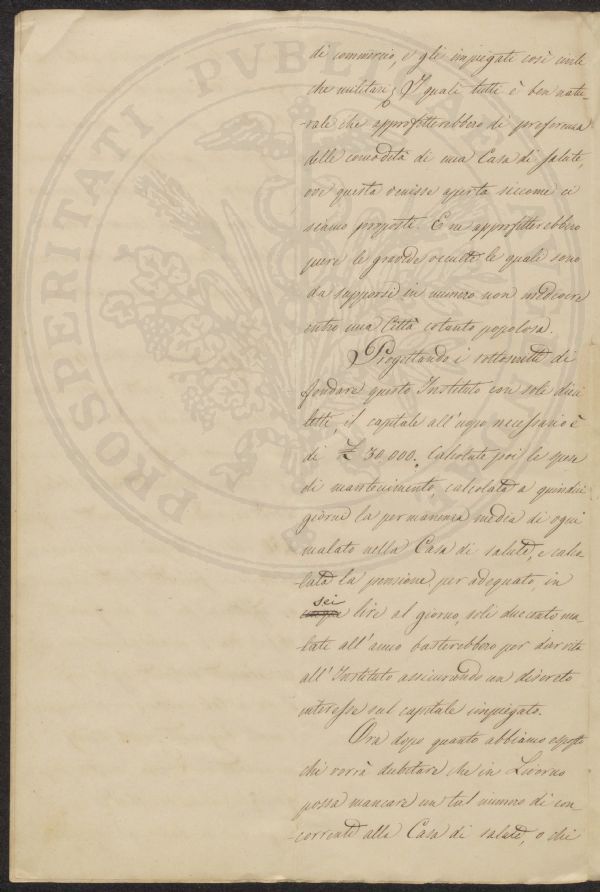 di commercio, e gli impiegati così civili
che militari; I quali tutti è ben natu-
-rale che approfitterebbero di preferenza
delle comodità di una Casa di Salute,
ove questa venisse aperta siccome ci
siamo proposti. E ne approfitterebbero
pure le gravide occulte le quali sono
da supporsi in numero non mediocre
entro una Città cotanto popolosa.
Progettando i sottoscritti di
fondare questo Instituto con soli dieci
letti, il capitale all'uopo necessario è
di £ 30,000. Calcolate poi le spese
di mantenimento, calcolata a quindici
giorni la permanenza media di ogni
malato nella Casa di salute, e calco
lata la pensione, per adequato, in
sei
cinque lire al giorno, soli duecento ma
-lati all'anno basterebbero per dar vita
all'Instituto assicurando un discreto
interesse sul capitale impiegato.
Ora dopo quanto abbiamo esposto
chi vorrà dubitare che in Livorno
possa mancare un tal numero di con
correnti alla Casa di salute, o chi
PROSPERITATI PVBLICAE